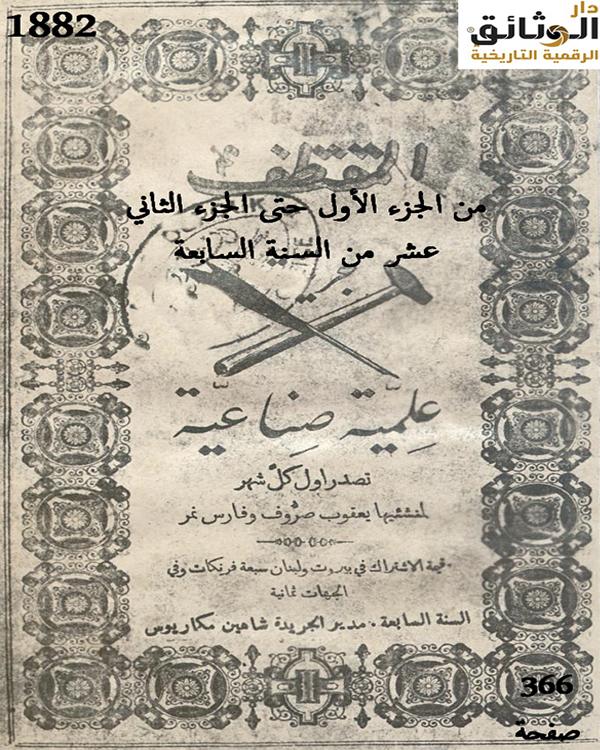 1882
دار
الوثائق
الرقمية التاريخية
المقتطف
من الجزء الأول حتى الجزء الثاني
عشر من السنة السابعة
علمية صناعية
تصدر اول كل شهر
لمنشئيها يعقوب صروف وفارس نمر
قيمة الاشتراك في بيروت ولبنان سبعة فرنكات وفي
الجهات ثمانية
السنة السابعة . مدير الجريدة شاهين مكاريوس
366
صفحة